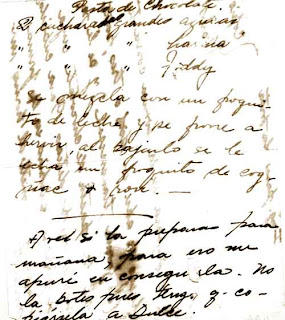 Pasta de Chocolate.
2 cucharadas grandes azúcar
" " " harina
" " " Toddy
Se mezcla con un poqui-
to de leche y se pone a
hervir, al bajarlo se le
echa un poquito de cog-
nac o ron. —
A ver si la preparas para
mañana, para eso me
apuré en conseguirla. No
la botes pues tengo q- co-
piársela a Dulce.